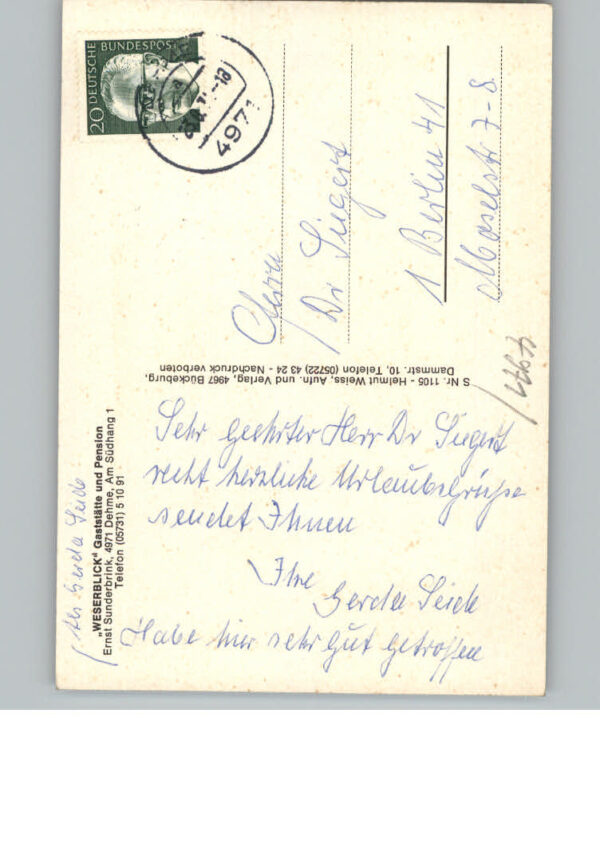 20 DEUTSCHE
BUNDESPOST
4971
Herrn
Dr Siegert
1 Berlin 41
Moselstr 7-8
S Nr. 1105 - Helmut Weiss, Aufn. und Verlag, 4967 Bückeburg,
Dammstr. 10, Telefon (05722) 43 24 - Nachdruck verboten
„WESERBLICK" Gaststätte und Pension
Ernst Sunderbrink, 4971 Dehme, Am Südhang 1
Telefon (05731) 5 10 91
Gerda Seide
Sehr geehrter Herr Dr Siegert
recht herzliche Urlaubsgrüsse
sendet Ihnen
Ihre
Gerda Seide
Habe hier sehr gut getroffen